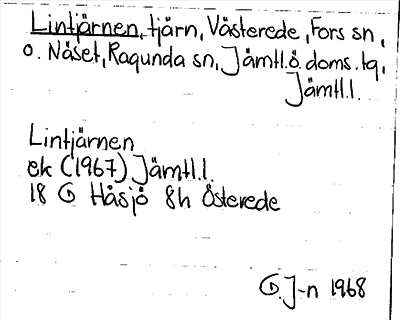 Lintjärnen, tjärn, Västerede, Fors sn,
o. Näset, Ragunda sn, Jämtl. ö. doms. tg,
Jämtl. l.
Lintjärnen
ek (1967) Jämtl. l.
18 G Håsjö 8h Österede
G. J-n 1968